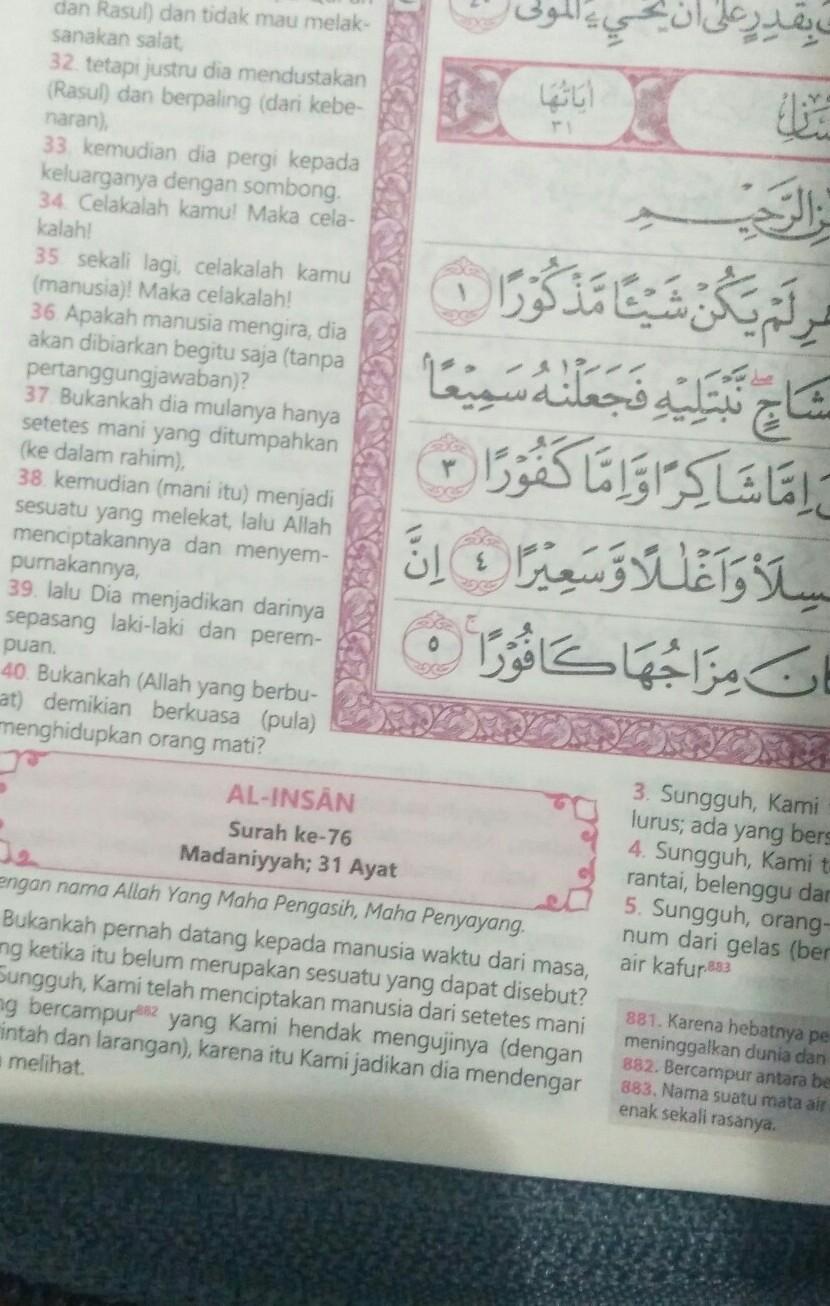 dan Rasul) dan tidak mau melak-
sanakan salat,
32. tetapi justru dia mendustakan
(Rasul) dan berpaling (dari kebe-
naran),
33. kemudian dia pergi kepada
keluarganya dengan sombong.
34. Celakalah kamu! Maka cela-
kalah!
35 sekali lagi, celakalah kamu
(manusia)! Maka celakalah!
36 Apakah manusia mengira, dia
akan dibiarkan begitu saja (tanpa
pertanggungjawaban)?
37. Bukankah dia mulanya hanya
setetes mani yang ditumpahkan
(ke dalam rahim),
38. kemudian (mani itu) menjadi
sesuatu yang melekat, lalu Allah
menciptakannya dan menyem-
purnakannya,
39. lalu Dia menjadikan darinya
sepasang laki-laki dan perem-
puan.
40. Bukankah (Allah yang berbu-
at) demikian berkuasa (pula)
menghidupkan orang mati?
بِقٰدِرٍ عَلٰٓى اَنْ يُّحْيِيَ الْمَوْتٰى
اٰيَاتُهَا
٣١
الرَّحِيْمِ
لَمْ يَكُنْ شَيْـًٔا مَّذْكُوْرًا ١
نَّبْتَلِيْهِ فَجَعَلْنٰهُ سَمِيْعًا
اِمَّا شَاكِرًا وَّاِمَّا كَفُوْرًا ٣
وَاَغْلٰلًا وَّسَعِيْرًا ٤ اِنَّ
مِزَاجُهَا كَافُوْرًا ٥
AL-INSĀN
Surah ke-76
Madaniyyah; 31 Ayat
engan nama Allah Yang Maha Pengasih, Maha Penyayang.
Bukankah pernah datang kepada manusia waktu dari masa,
ng ketika itu belum merupakan sesuatu yang dapat disebut?
Sungguh, Kami telah menciptakan manusia dari setetes mani
ng bercampur882 yang Kami hendak mengujinya (dengan
intah dan larangan), karena itu Kami jadikan dia mendengar
melihat.
3. Sungguh, Kami
lurus; ada yang bers
4. Sungguh, Kami t
rantai, belenggu dan
5. Sungguh, orang-
num dari gelas (ber
air kafur.883
881. Karena hebatnya pe
meninggalkan dunia dan
882. Bercampur antara be
883. Nama suatu mata air
enak sekali rasanya.